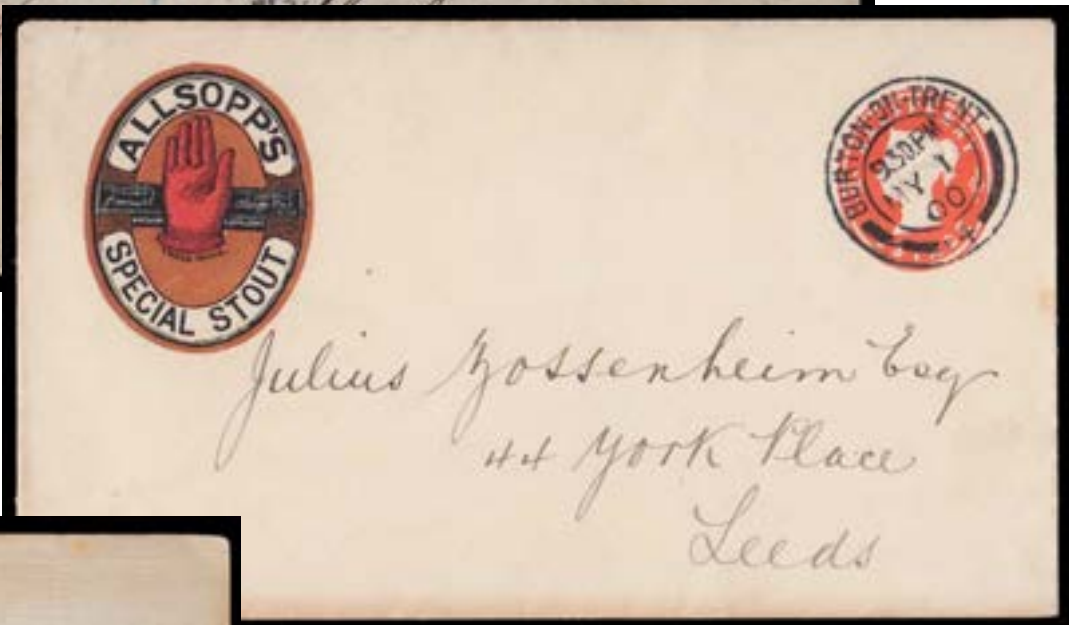 ALLSOPP'S
SPECIAL STOUT
BURTON-ON-TRENT
9.30PM
MY 1
00
Julius Zossenheim Esq
44 York Place
Leeds